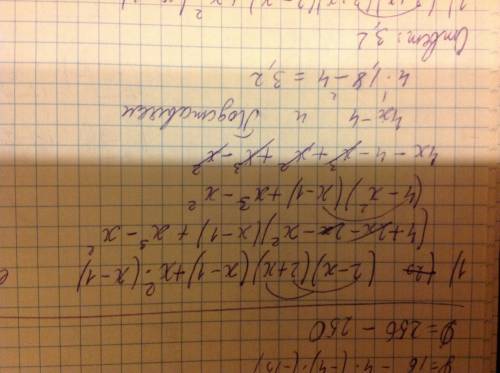 D = 256 - 250
1) (2-x)(2+x)(x-1)+x²·(x-1)
(4+2x-2x-x²)(x-1)+x³-x²
(4-x²)(x-1)+x³-x²
4x-4-x³+x²+x³-x²
4x-4 и Подставляем
4·1,8-4=3,2
Ответ: 3,2